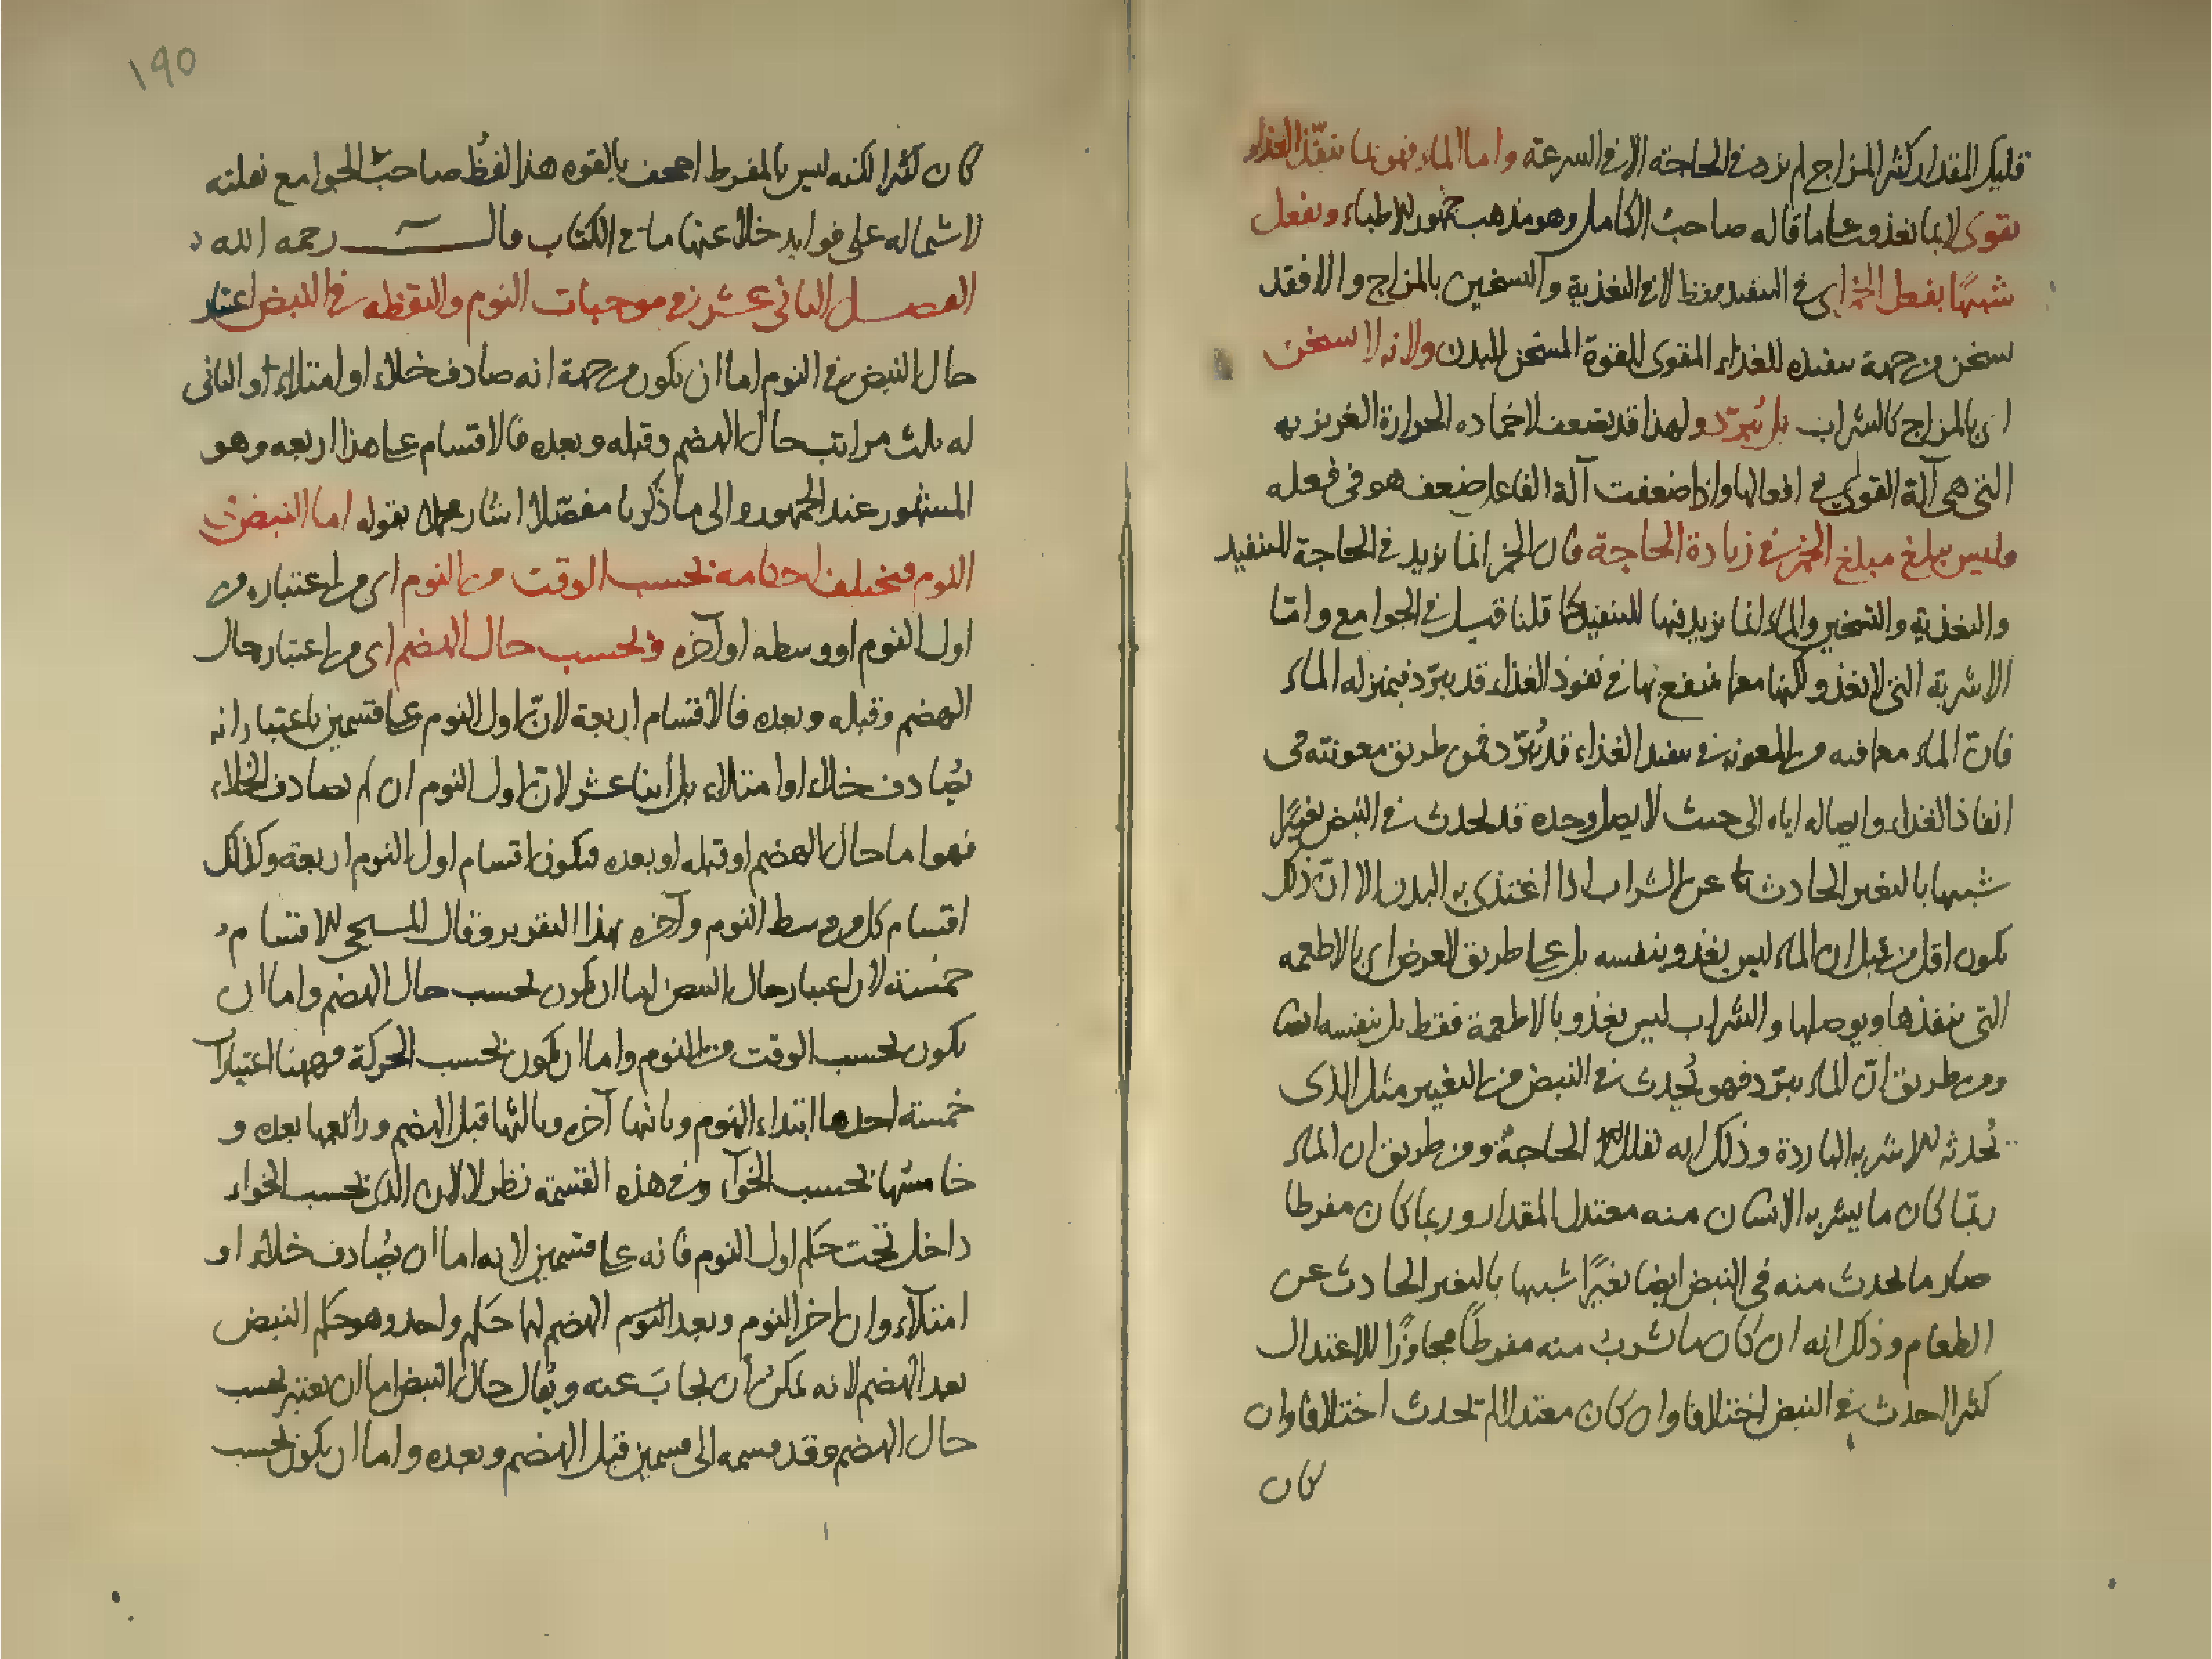 قليل المقدار كثير المزاج لم يزد في الحاجة الا في السرعة واما الماء فهو بما ينفذ الغذاء
يقوى لا بما يغذو على ما قاله صاحب الكامل وهو مذهب جمهور الاطباء ويفعل
شبيها بفعل الخمر اى في التنفيذ فقط لا في التغذية والتسخين بالمزاج والا فقد
سخن من جهة تنفيذه للغذاء المقوى للقوة المسخن للبدن ولانه لا يسخن
اى بالمزاج كالشراب بل يبرد ولهذا قد يضعف لاخماده الحرارة الغريزيه
التى هى آلة القوى في افعالها واذا ضعفت آلة الفاعل ضعف هو فى فعله
وليس يبلغ مبلغ الخمر في زيادة الحاجة فان الخمر انما يزيد في الحاجة للتنفيذ
والتغذية والتسخين والماء انما يزيد فيها للتنفيذ كما قلنا قيل في الجوامع واما
الاشربة التى لا تغذو ولكنها مما ينتفع بها في نفوذ الغذاء قد يبرد فبمنزله الماء
فان الماء مع ما فيه من المعونه في تنفيذ الغذاء قد يبرد فمن طريق معونته فى
انفاذ الغذاء وايصاله اياه الى حيث لا يصل وحده قد يحدث في النبض تغيرا
شبيها بالتغير الحادث عن الشراب اذا اغتذى به البدن الا ان ذلك
يكون اقل من قبل ان الماء ليس يغذو بنفسه بل على طريق العرض اى بالاطعمه
التى ينفذها ويوصلها والشراب ليس يغذو بالاطعمة فقط بل بنفسه ايضا
ومن طريق ان الماء يبرد فهو يحدث في النبض من التغيير مثل الذى
تحدثه الاشربه الباردة وذلك انه تقلل الحاجة ومن طريق ان الماء
ربما كان ما يشربه الانسان منه معتدل المقدار وربما كان مفرطا
صار ما يحدث منه فى النبض ايضا تغيرا شبيها بالتغير الحادث عن
الطعام وذلك انه ان كان ما شرب منه مفرطا مجاوزا للاعتدال
كثيرا احدث في النبض اختلافا وان كان معتدلا لم يحدث اختلافا وان
كان
١٩٥
كان كثيرا لكنه ليس بالمفرط اجحف بالقوه هذا لفظ صاحب الجوامع نقلته
لاشتماله على فوايد خلا عنها ما في الكتاب قال رحمه الله
الفصل الثانى عشر في موجبات النوم واليقظه في النبض اعتبار
حال النبض في النوم اما ان يكون من جهة انه صادف خلاء او امتلاء او الثانى
له ثلث مراتب حال الهضم وقبله وبعده فالاقسام على هذا اربعه وهو
المشهور عند الجمهور والى ما ذكرنا مفصلا اشار مجملا بقوله اما النبض في
النوم فيختلف احكامه بحسب الوقت من النوم اى من اعتباره من
اول النوم او وسطه او آخره وبحسب حال الهضم اى من اعتبار حال
الهضم وقبله وبعده فالاقسام اربعة لان اول النوم على قسمين باعتبار انه
يصادف خلاء او امتلاء بل اثنا عشر لان اول النوم ان لم يصادف الخلاء
فهو اما حال الهضم او قبله او بعده فيكون اقسام اول النوم اربعة وكذلك
اقسام كل من وسط النوم وآخره بهذا التقرير وقال المسيحى الاقسام
خمسة لان اعتبار حال النبض اما ان يكون بحسب حال الهضم واما ان
يكون بحسب الوقت من النوم واما ان يكون بحسب الحركة فههنا اعتبارات
خمسة احدها ابتداء النوم وثانيها آخره وثالثها قبل الهضم ورابعها بعده و
خامسها بحسب الخواء وفي هذه القسمة نظر لا لان الذى بحسب الخواء
داخل تحت حكم اول النوم فانه على قسمين لانه اما ان يصادف خلاء او
امتلاء وان اخر النوم وبعد النوم الهضم لهما حكم واحد وهو حكم النبض
بعد الهضم لانه يمكن ان يجاب عنه ويقال حال النبض اما ان يعتبر بحسب
حال الهضم وقد قسمه الى قسمين قبل الهضم وبعده واما ان يكون بحسب